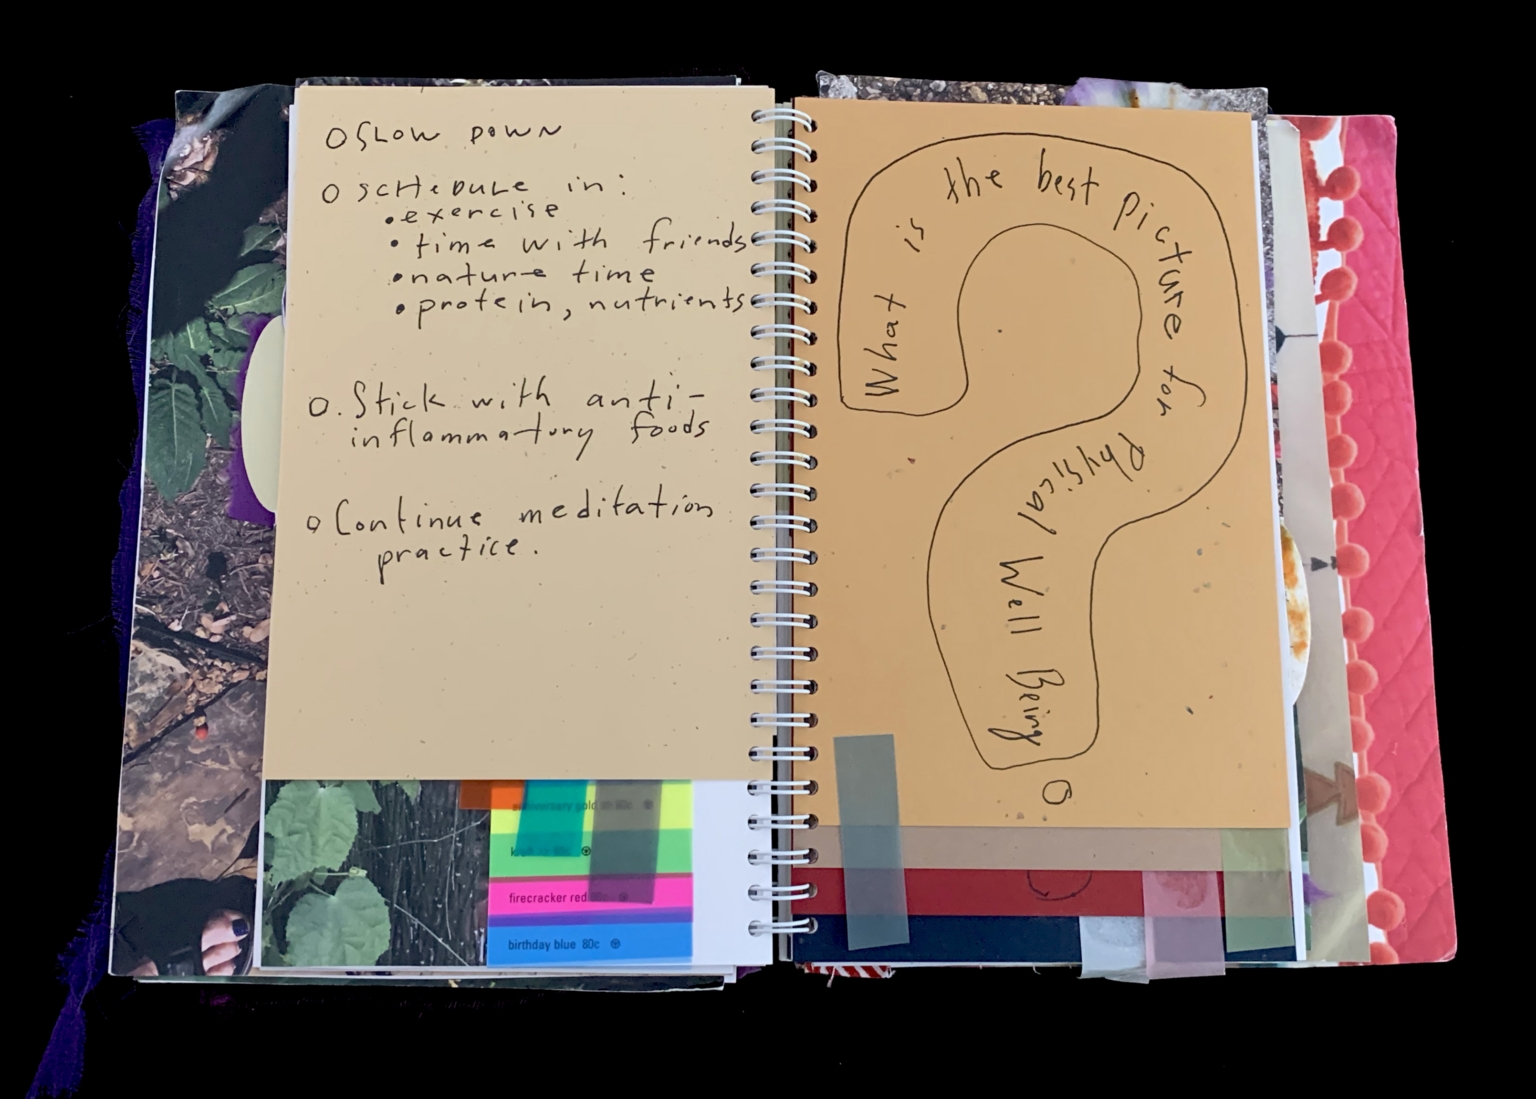 o SLOW DOWN
o SCHEDULE in:
• exercise
• time with friends
• nature time
• protein, nutrients
o. Stick with anti-
inflammatory foods
o Continue meditation
practice.
What is the best picture for Physical Well Being
firecracker red
birthday blue 80c